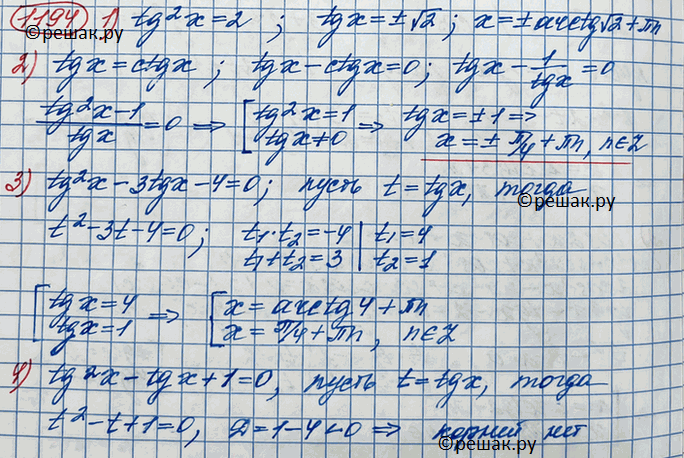 1194 1) tg²x=2 ; tgx=±√2; x=±arctg√2+πn
©решак.ру
2) tgx=ctgx ; tgx-ctgx=0; tgx-1/tgx=0
(tg²x-1)/tgx=0 ⇒ [tg²x=1 ⇒ tgx=±1⇒
tgx≠0 x=±π/4+πn, n∈Z
3) tg²x-3tgx-4=0; пусть t=tgx, тогда
©решак.ру
t²-3t-4=0; t₁·t₂=-4 | t₁=4
t₁+t₂=3 | t₂=1
[tgx=4 ⇒ [x=arctg4+πn
tgx=1 x=π/4+πn, n∈Z
4) tg²x-tgx+1=0, пусть t=tgx, тогда
t²-t+1=0, D=1-4<0 ⇒ корней нет
©решак.ру